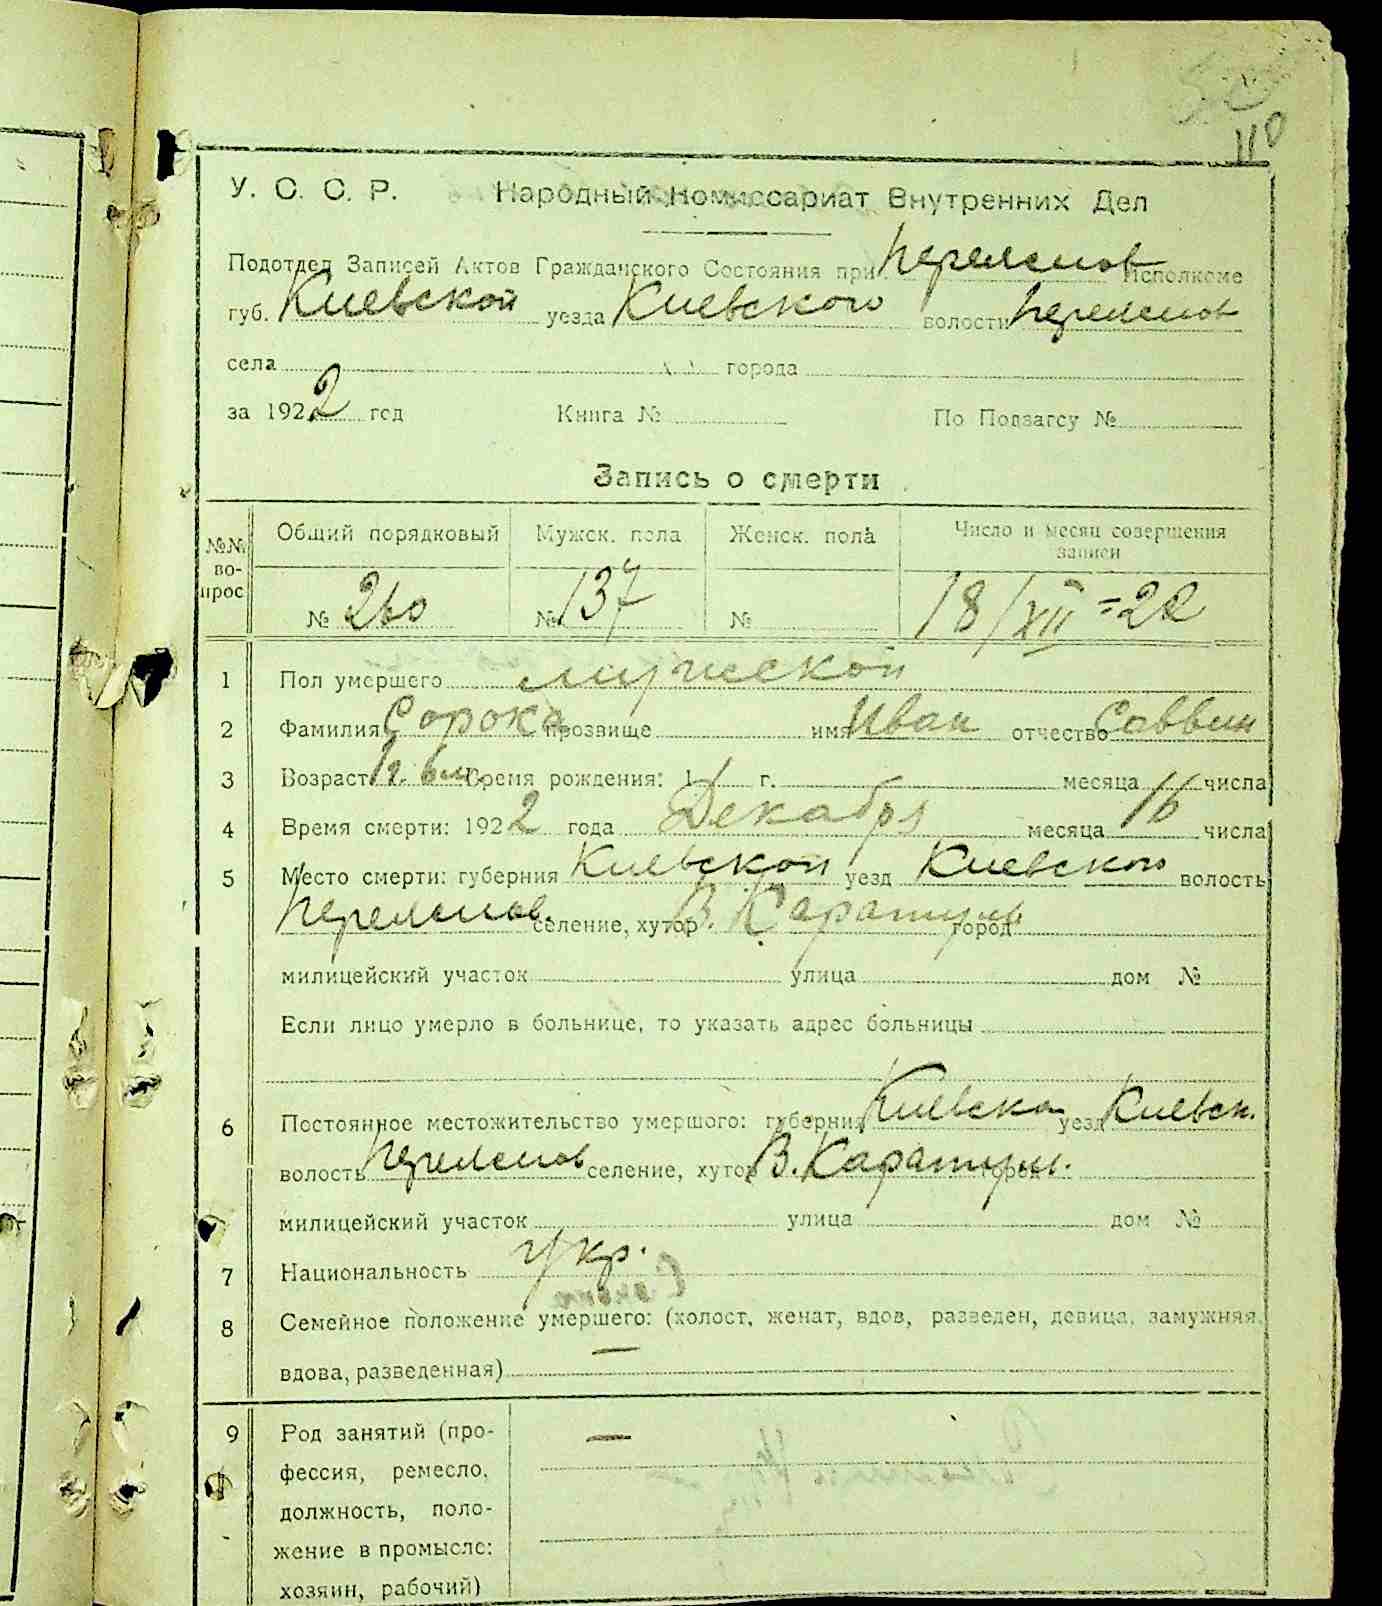 110
У. С. С. Р. Народный Комиссариат Внутренних Дел
Подотдел Записей Актов Гражданского Состояния при Исполкоме
губ. Киевской уезда Киевского волости
села города
за 1922 год Книга № По Подзагсу №
Запись о смерти
№№ вопрос Общий порядковый Мужск. пола Женск. пола Число и месяц совершения записи
№ 260 № 137 № 18/XII=22
1 Пол умершего мужеской
2 Фамилия Сорока прозвище имя Иван отчество Саввин
3 Возраст 1 г. 6 м. Время рождения: 1 г. месяца числа
4 Время смерти: 1922 года Декабря месяца 16 числа
5 Место смерти: губерния Киевской уезд Киевского волость
селение, хутор В. Каратуль город
милицейский участок улица дом №
Если лицо умерло в больнице, то указать адрес больницы
6 Постоянное местожительство умершого: губерния Киевска уезд Киевск.
волость селение, хутор В. Каратули. город
милицейский участок улица дом №
7 Национальность укр.
8 Семейное положение умершего: (холост, женат, вдов, разведен, девица, замужняя,
вдова, разведенная) —
9 Род занятий (про- —
фессия, ремесло,
должность, поло-
жение в промысле:
хозяин, рабочий)